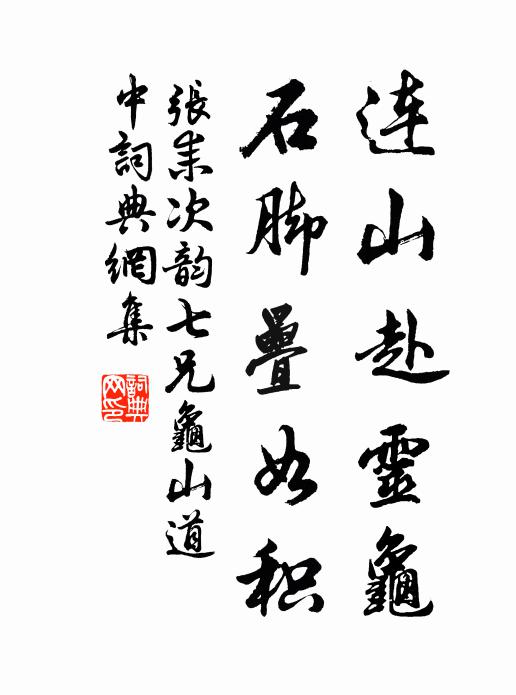 连山赴靈龜
石脚疊如积
張耒次韵七兄龜山道
中詞典網集
詞典網印